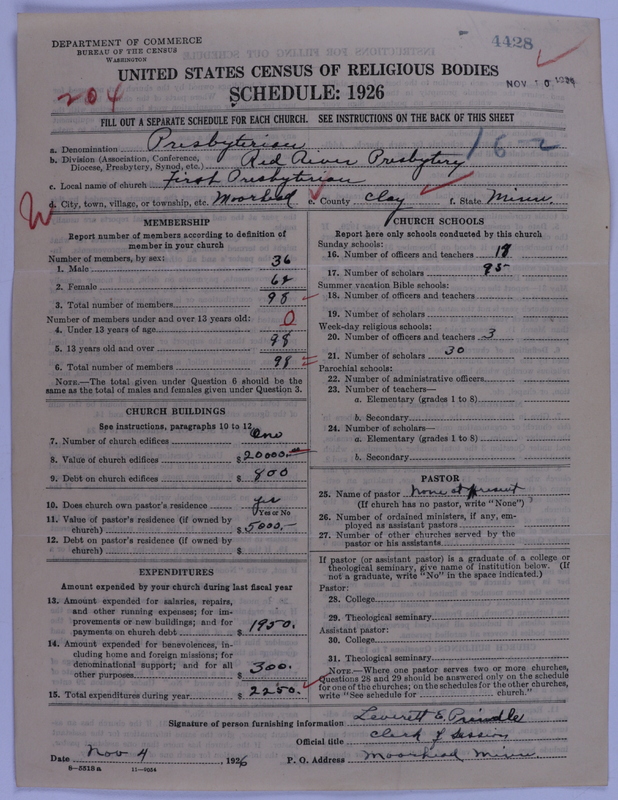 DEPARTMENT OF COMMERCE
BUREAU OF THE CENSUS
WASHINGTON
4428
UNITED STATES CENSUS OF RELIGIOUS BODIES
NOV 10 1926
204
SCHEDULE: 1926
FILL OUT A SEPARATE SCHEDULE FOR EACH CHURCH. SEE INSTRUCTIONS ON THE BACK OF THIS SHEET
a. Denomination Presbyterian
16-2
b. Division (Association, Conference, Diocese, Presbytery, Synod, etc.) Red River Presbytery
c. Local name of church First Presbyterian
d. City, town, village, or township, etc. Moorhead e. County Clay f. State Minn.
MEMBERSHIP
Report number of members according to definition of
member in your church
Number of members, by sex:
1. Male 36
2. Female 62
3. Total number of members 98
Number of members under and over 13 years old:
4. Under 13 years of age 0
5. 13 years old and over 98
6. Total number of members 98
NOTE.—The total given under Question 6 should be
same as the total of males and females given under Question 3.
CHURCH BUILDINGS
See instructions, paragraphs 10 to 12
7. Number of church edifices One
8. Value of church edifices $20000.—
9. Debt on church edifices $800
10. Does church own pastor's residence yes
Yes or No
11. Value of pastor's residence (if owned by
church) $5000.—
12. Debt on pastor's residence (if owned by
church) $
EXPENDITURES
Amount expended by your church during last fiscal year
13. Amount expended for salaries, repairs,
and other running expenses; for im-
provements or new buildings; and for
payments on church debt $1950.
14. Amount expended for benevolences, in-
cluding home and foreign missions; for
denominational support; and for all
other purposes $300.
15. Total expenditures during year $2250.
CHURCH SCHOOLS
Report here only schools conducted by this church
Sunday schools:
16. Number of officers and teachers 18
17. Number of scholars 95
Summer vacation Bible schools:
18. Number of officers and teachers
19. Number of scholars
Week-day religious schools:
20. Number of officers and teachers 3
21. Number of scholars 30
Parochial schools:
22. Number of administrative officers
23. Number of teachers—
a. Elementary (grades 1 to 8)
b. Secondary
24. Number of scholars—
a. Elementary (grades 1 to 8)
b. Secondary
PASTOR
25. Name of pastor None at present
(If church has no pastor, write "None")
26. Number of ordained ministers, if any, em-
ployed as assistant pastors
27. Number of other churches served by the
pastor or his assistants
If pastor (or assistant pastor) is a graduate of a college or
theological seminary, give name of institution below. (If
not a graduate, write "No" in the space indicated.)
Pastor:
28. College
29. Theological seminary
Assistant pastor:
30. College
31. Theological seminary
NOTE.—Where one pastor serves two or more churches,
Questions 28 and 29 should be answered only on the schedule
for one of the churches; on the schedules for the other churches,
write "See schedule for church."
Signature of person furnishing information Leverett E. Prindle
Official title Clerk of Session
Date Nov 4 1926 P. O. Address Moorhead Minn.
8—5518 a 11—9054